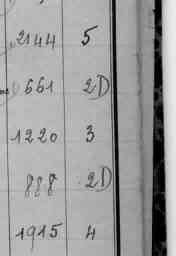 2144 5
661 2D
1220 3
888 2D
1915 4